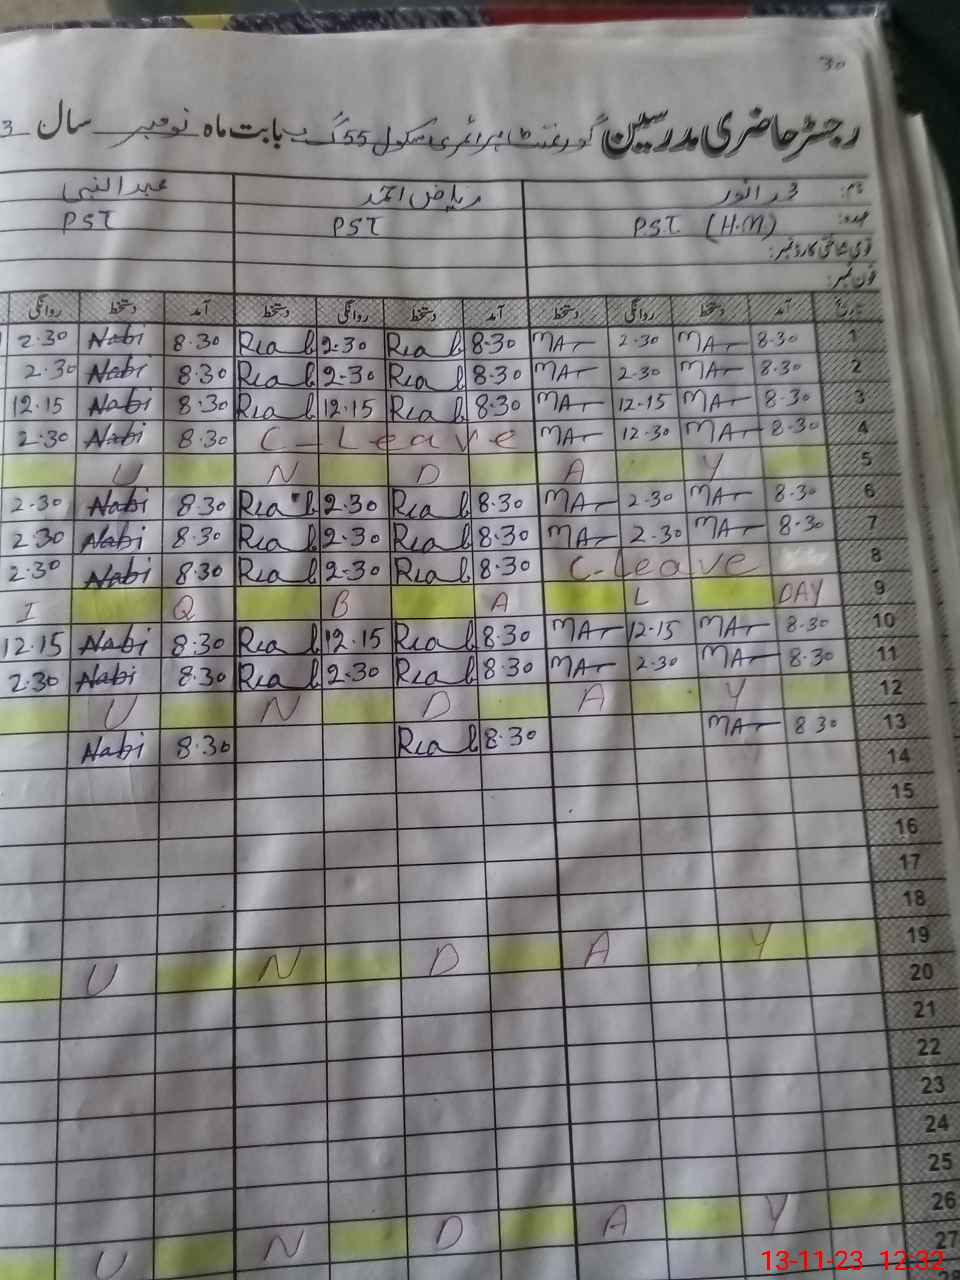 30
رجسٹر حاضری مدرسین گورنمنٹ پرائمری سکول 55 گ ب بابت ماہ نومبر سال 3
نام: محمد انور ریاض احمد عبدالنبی
عہدہ: P.S.T. (H.M) PST PST
قومی شناختی کارڈ نمبر:
فون نمبر:
تاریخ آمد دستخط روانگی دستخط آمد دستخط روانگی دستخط آمد دستخط روانگی
1 8.30 MAr 2.30 MAr 8.30 Riab 2.30 Riab 8.30 Nabi 2.30
2 8.30 MAr 2.30 MAr 8.30 Riab 2.30 Riab 8.30 Nabi 2.30
3 8.30 MAr 12.15 MAr 8.30 Riab 12.15 Riab 8.30 Nabi 12.15
4 8.30 MAr 12.30 MAr C-Leave 8.30 Nabi 2.30
5 U N D A Y
6 8.30 MAr 2.30 MAr 8.30 Riab 2.30 Riab 8.30 Nabi 2.30
7 8.30 MAr 2.30 MAr 8.30 Riab 2.30 Riab 8.30 Nabi 2.30
8 C-leave 8.30 Riab 2.30 Riab 8.30 Nabi 2.30
9 I Q B A L DAY
10 8.30 MAr 12.15 MAr 8.30 Riab 12.15 Riab 8.30 Nabi 12.15
11 8.30 MAr 2.30 MAr 8.30 Riab 2.30 Riab 8.30 Nabi 2.30
12 U N D A Y
13 8.30 MAr 8.30 Riab 8.30 Nabi
14
15
16
17
18
19 U N D A Y
20
21
22
23
24
25
26 U N D A Y
27
28
13-11-23 12:32